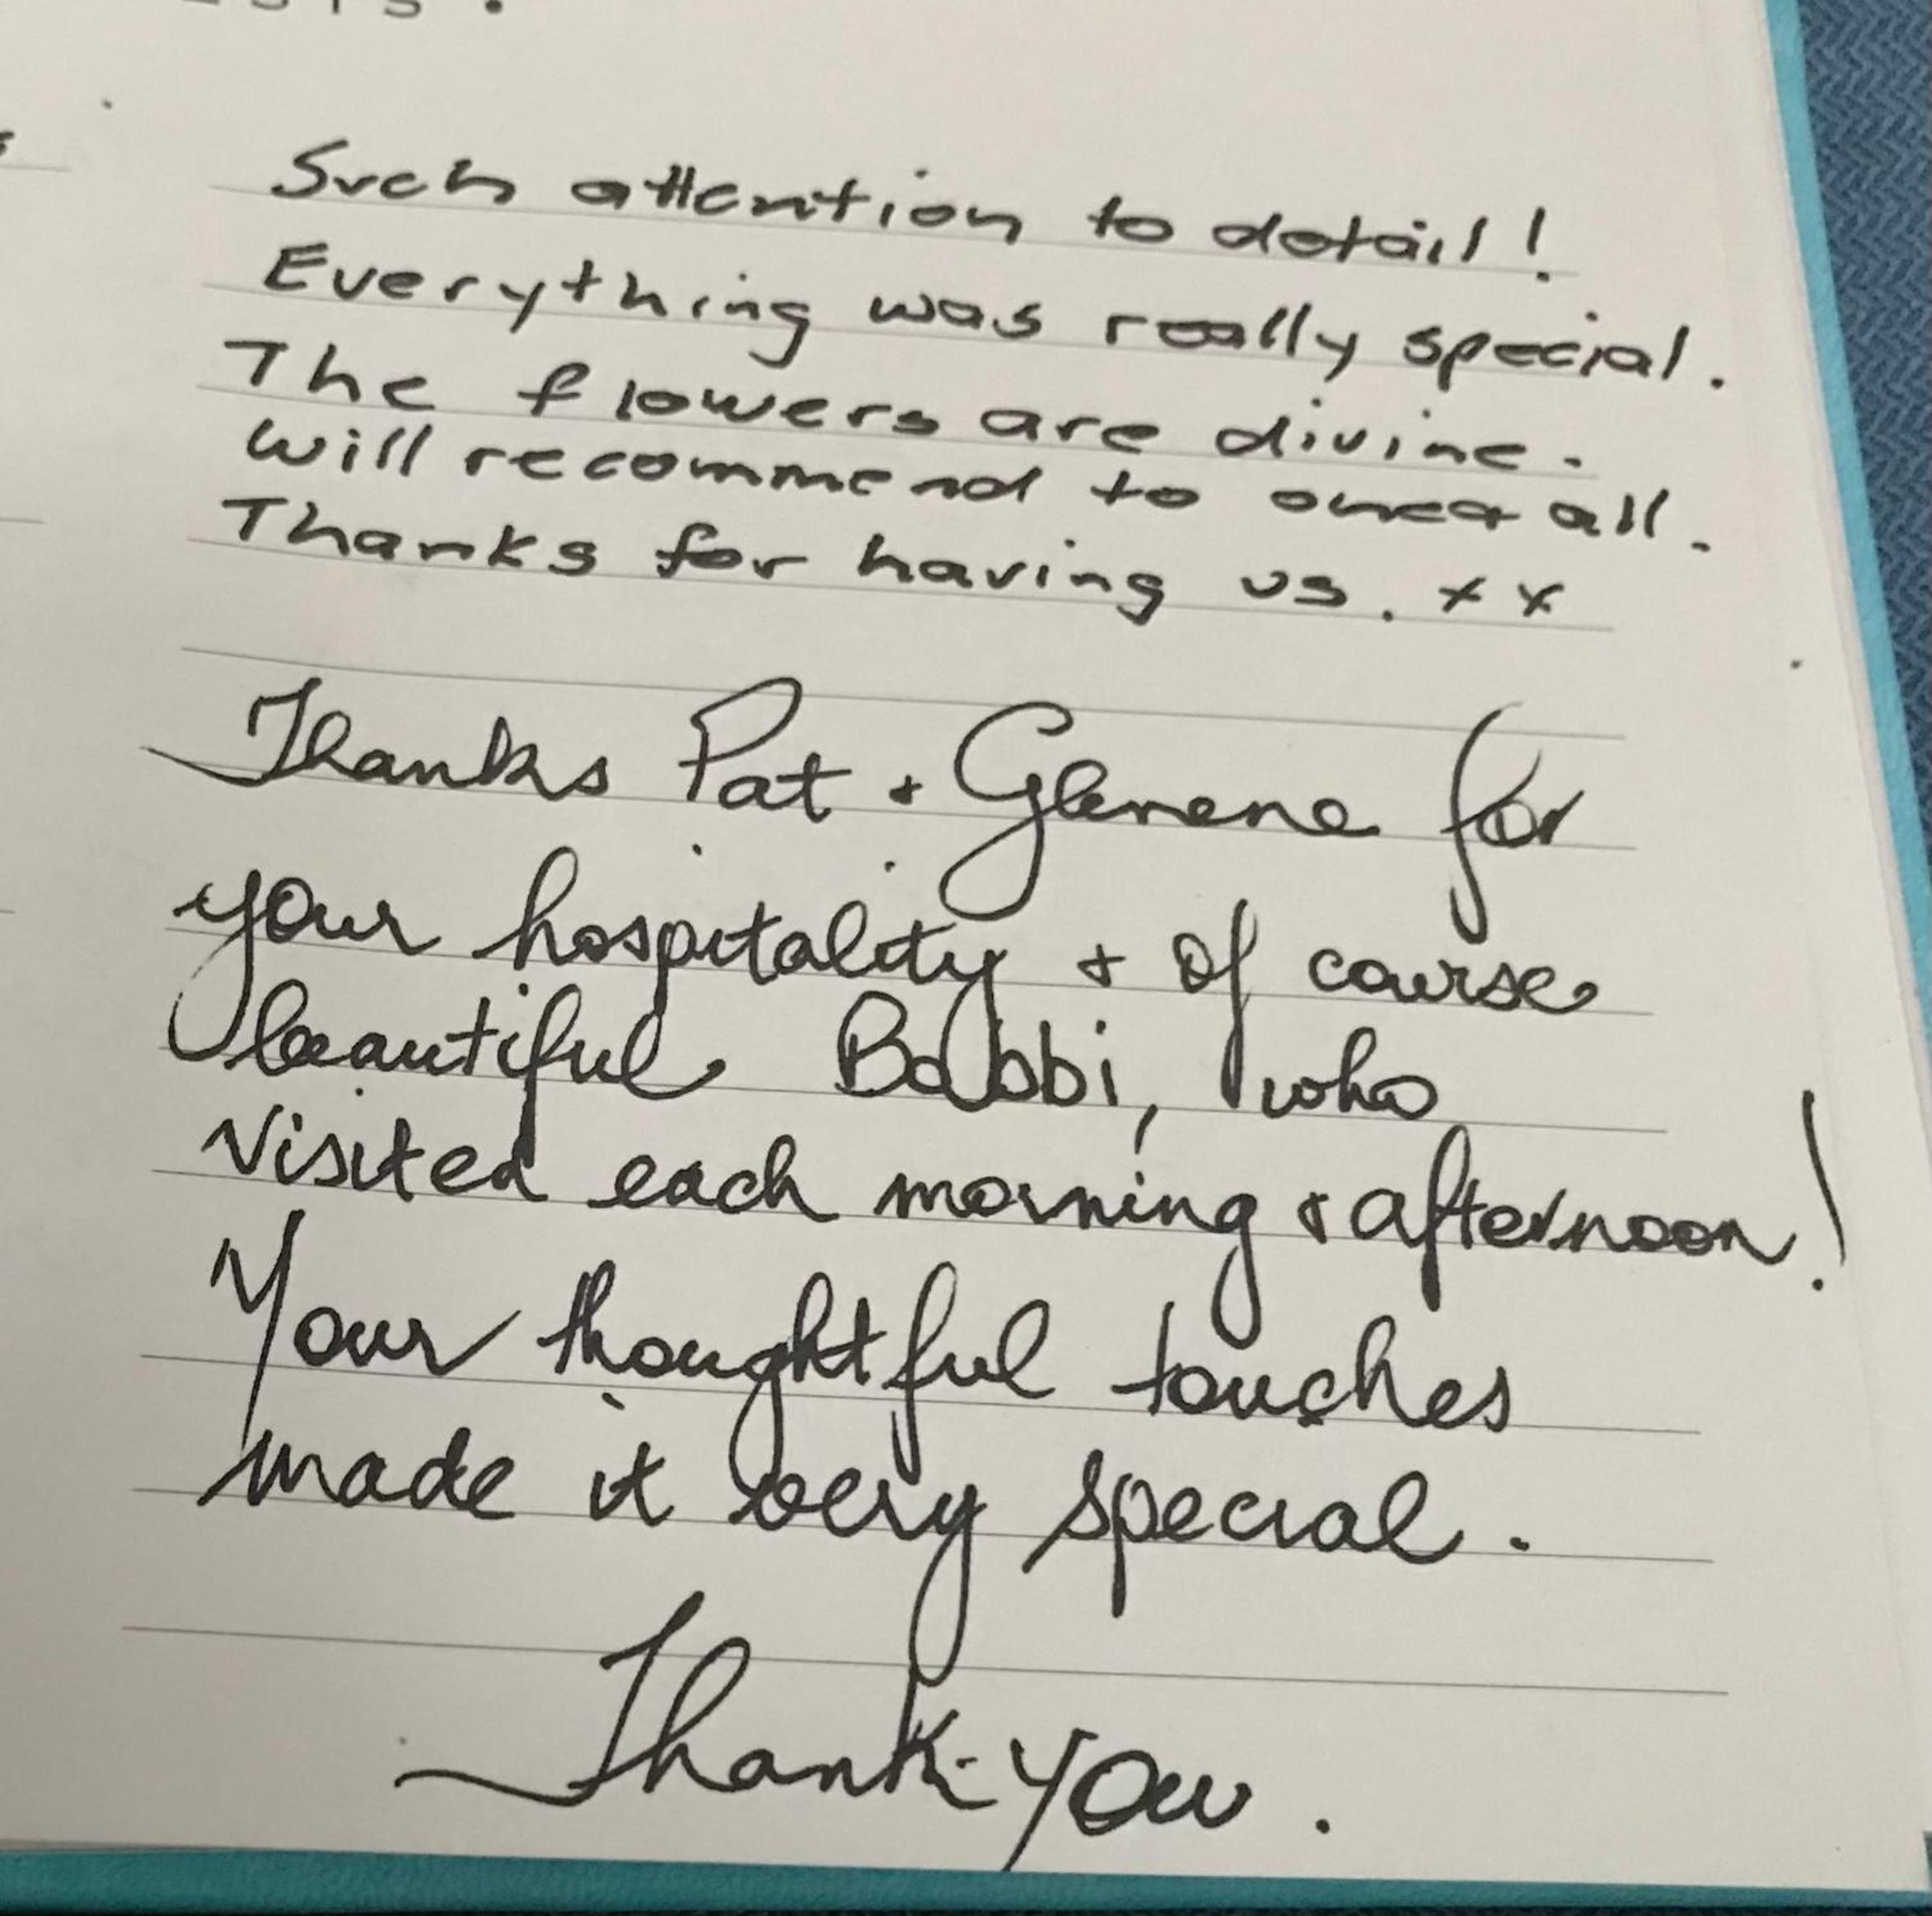 Such attention to detail!
Everything was really special.
The flowers are divine.
Will recommend to one & all.
Thanks for having us. xx
Thanks Pat + Glenene for
your hospitality + of course
beautiful Bobbi, who
visited each morning & afternoon!
Your thoughtful touches
made it very special.
Thank-you.